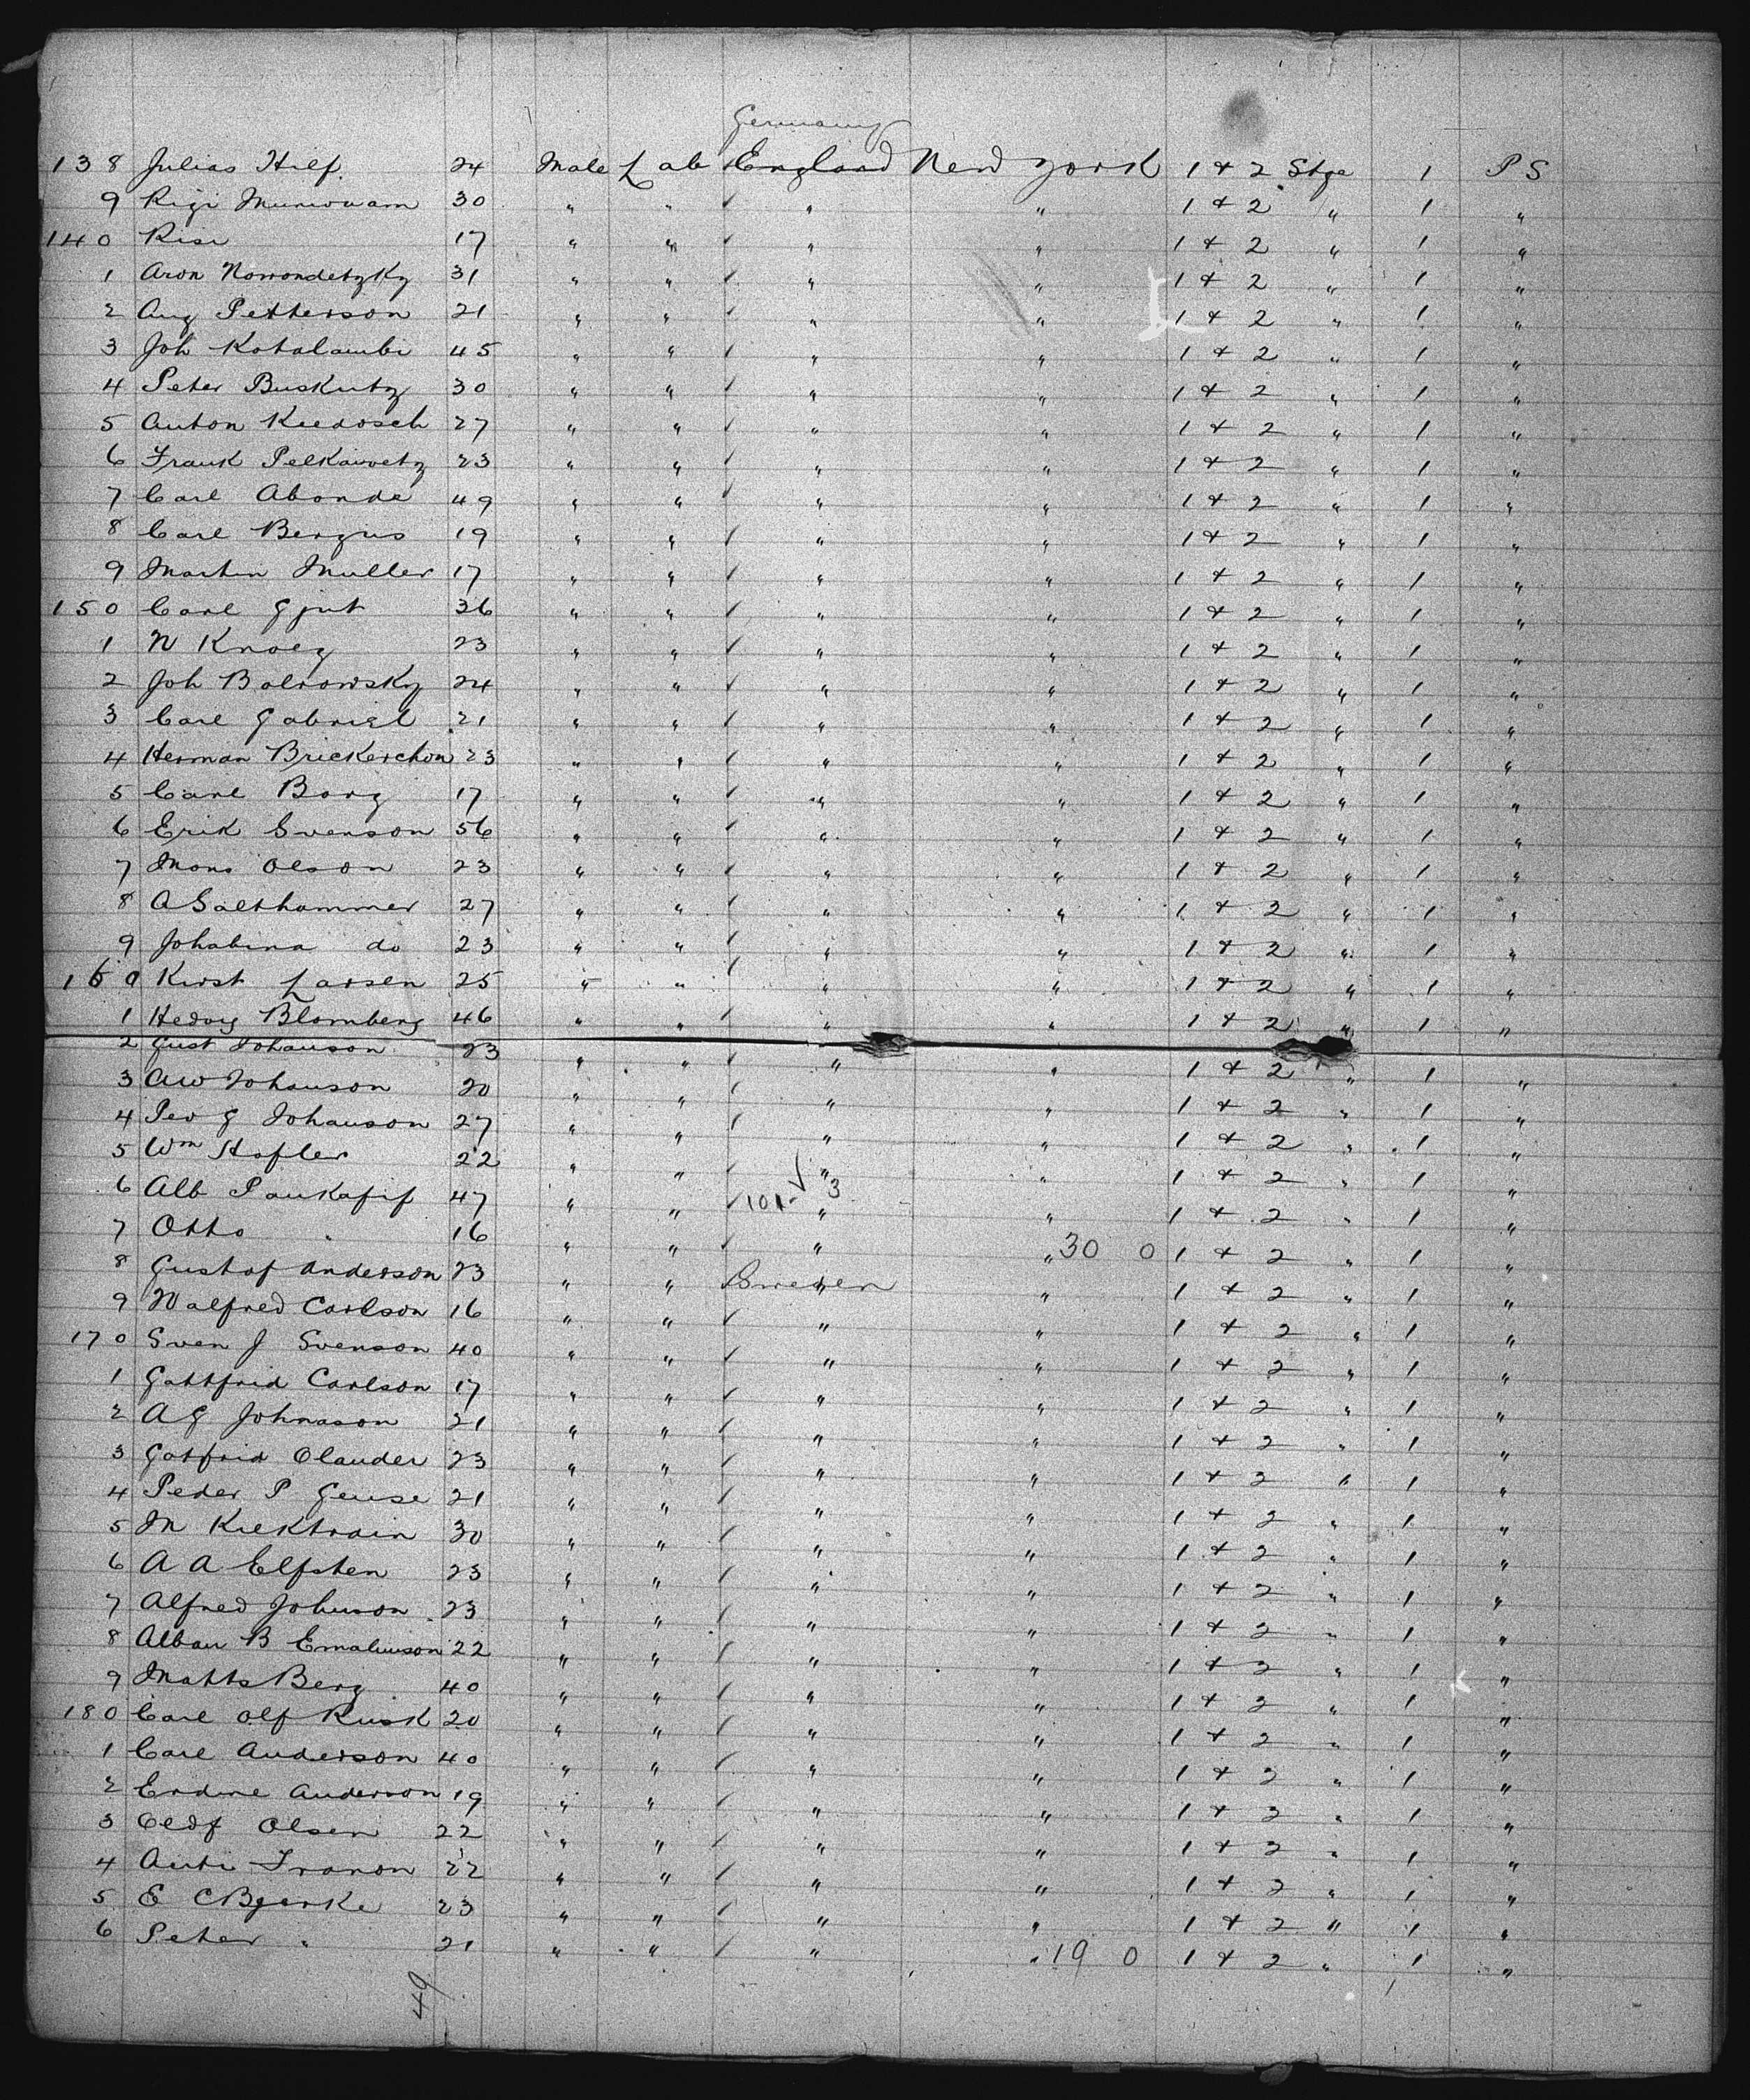 Germany
138 Julias Hilf 24 Male Lab England New York 1 + 2 Stge 1 P S
9 30 " " " " 1 + 2 " 1 "
140 Risi 17 " " " " 1 + 2 " 1 "
1 Aron 31 " " " " 1 + 2 " 1 "
2 Aug Petterson 21 " " " " 1 + 2 " 1 "
3 Joh 45 " " " " 1 + 2 " 1 "
4 Peter Buskutz 30 " " " " 1 + 2 " 1 "
5 Anton 27 " " " " 1 + 2 " 1 "
6 Frank 23 " " " " 1 + 2 " 1 "
7 Carl Abonde 49 " " " " 1 + 2 " 1 "
8 Carl Bergus 19 " " " " 1 + 2 " 1 "
9 Martin Muller 17 " " " " 1 + 2 " 1 "
150 Carl Gjut 36 " " " " 1 + 2 " 1 "
1 N 23 " " " " 1 + 2 " 1 "
2 Joh 24 " " " " 1 + 2 " 1 "
3 Carl Gabriel 21 " " " " 1 + 2 " 1 "
4 Herman Brickerchon 23 " " " " 1 + 2 " 1 "
5 Carl Borg 17 " " " " 1 + 2 " 1 "
6 Erik Svenson 56 " " " " 1 + 2 " 1 "
7 Mons Olson 23 " " " " 1 + 2 " 1 "
8 A Salthammer 27 " " " " 1 + 2 " 1 "
9 Johabina do 23 " " " " 1 + 2 " 1 "
160 Kirst Larsen 25 " " " " 1 + 2 " 1 "
1 Hedvig Blomberg 46 " " " " 1 + 2 " 1 "
2 Gust Johanson 23 " " " " 1 + 2 " 1 "
3 A W Johanson 20 " " " " 1 + 2 " 1 "
4 Per G Johanson 27 " " " " 1 + 2 " 1 "
5 Wm Hofler 22 " " " " 1 + 2 " 1 "
6 Alb 47 " " 101- 3 " " 1 + 2 " 1 "
7 Otto " 16 " " " " 30 0 1 + 2 " 1 "
8 Gustaf Anderson 23 " " Sweden " 1 + 2 " 1 "
9 Walfred Carlson 16 " " " " 1 + 2 " 1 "
170 Sven J Svenson 40 " " " " 1 + 2 " 1 "
1 Gottfrid Carlson 17 " " " " 1 + 2 " 1 "
2 A G Johnason 21 " " " " 1 + 2 " 1 "
3 Gotfrid Olander 23 " " " " 1 + 2 " 1 "
4 Peder P 21 " " " " 1 + 2 " 1 "
5 M 30 " " " " 1 + 2 " 1 "
6 A A Elfsten 23 " " " " 1 + 2 " 1 "
7 Alfred Johnson 23 " " " " 1 + 2 " 1 "
8 Alban B 22 " " " " 1 + 2 " 1 "
9 Matts Berg 40 " " " " 1 + 2 " 1 "
180 Carl Olf Rusk 20 " " " " 1 + 2 " 1 "
1 Carl Anderson 40 " " " " 1 + 2 " 1 "
2 Anderson 19 " " " " 1 + 2 " 1 "
3 Olsen 22 " " " " 1 + 2 " 1 "
4 22 " " " " 1 + 2 " 1 "
5 E C Bjerke 23 " " " " 1 + 2 " 1 "
6 Peter " 21 " " " " 19 0 1 + 2 " 1 "
49